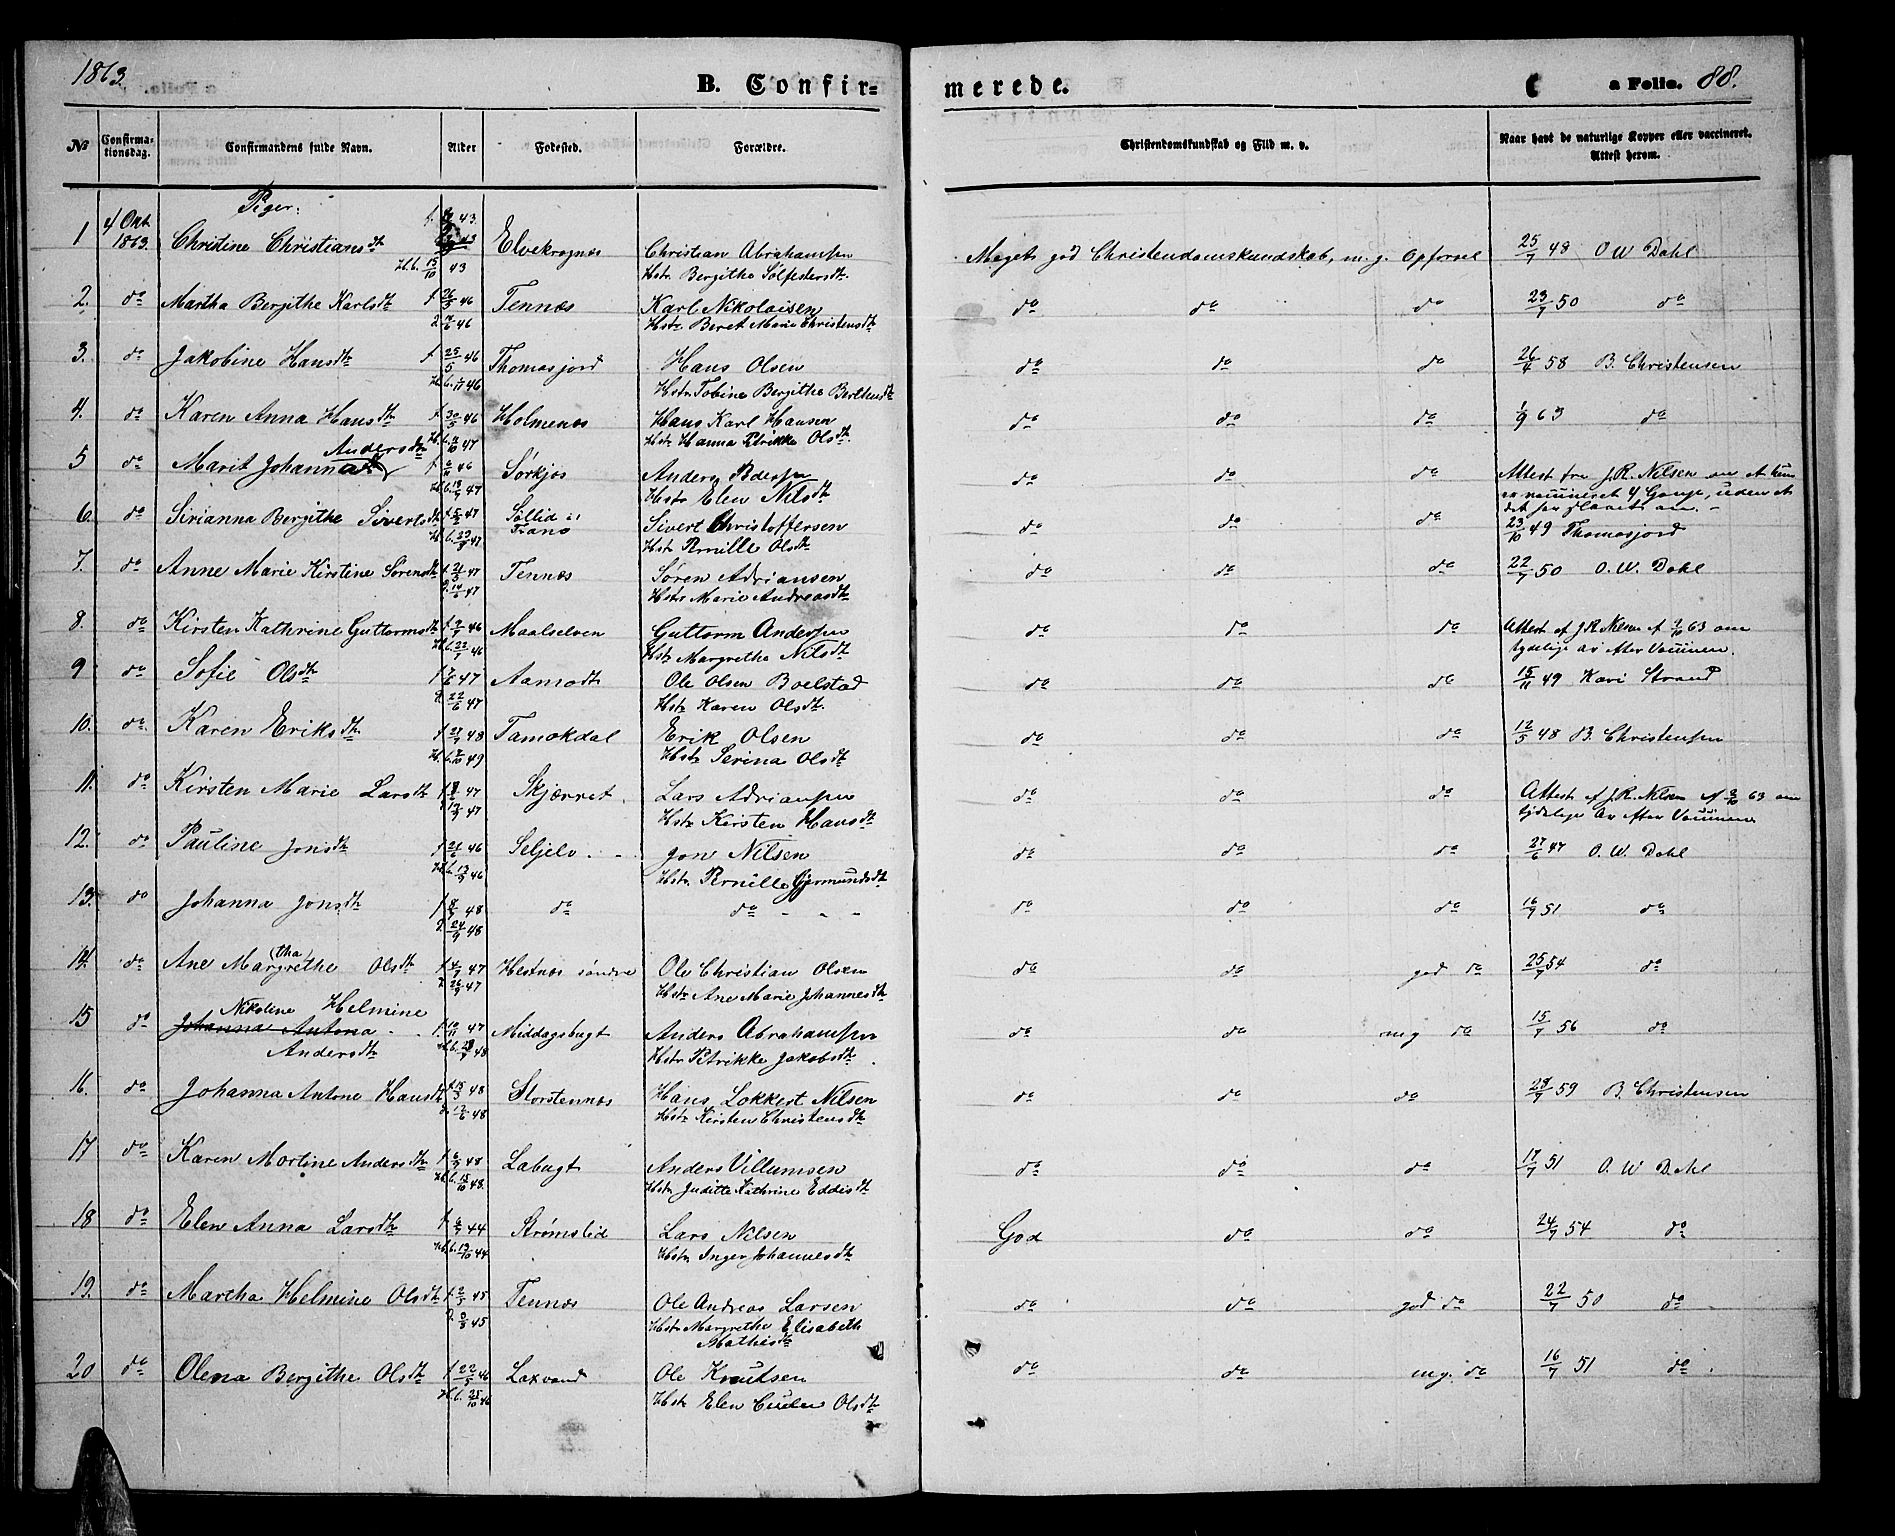 1863.
B. Confir=
merede.
a Folio. 88.
№ Confirma-tionsdag. Confirmandens fulde Navn. Alder Fødested. Forældre. Christendomskundskab og Flid m. v. Naar havt de naturlige Kopper eller vaccineret. Attest herom.
Piger:
1 4 Okt 1863. Christine Christiansdtr 43 Elvekrognæs Christian Abrahamsen
Hstr Bergithe Sølfestersdtr. Meget god Christendomskundskab, m. g. Opførsel 25/7 48 O W Dahl
2. do Martha Bergithe Karlsdtr f 26/3 46 Tennæs Karl Nikolaisen
Hstr Beret Marie Christensdtr do do do 23/7 50 do
3. do Jakobine Hansdtr f 25/5 46 Thomasjord Hans Olsen
Hstr Tobine Bergithe Berthensdtr do do do 26/4 58 B. Christensen
4. do Karen Anna Hansdtr f 30/5 46 Holmenæs Hans Karl Hansen
Hstr Hanna Petrikke Olsdtr. do do do 1/9 63 do
5 do Marit Johanna Andersdtr 46 Sørkjos Anders Pedersen
Hstr Elen Nilsdtr do do do Attest fra J. R. Nilsen om at hun
er vaccineret 4 Gange, uden at
det har slaaet an. -
6. do Sirianna Bergithe Sivertsdtr 47 Søllid i Tranø Sivert Christoffersen
Hstr Pernille Olsdtr do do do 23/10 49 Thomasjord
7. do Anne Marie Kirstine Sørensdtr f 21/3 47 Tennæs Søren Adriansen
Hstr Marie Andreasdtr do do do 22/7 50 O. W. Dahl
8. do Kirsten Kathrine Guttormsdtr 46 Maalselven Guttorm Andersen
Hstr Margrethe Nilsdtr do do do Attest af J. R. Nilsen af 2/10 63 om
tydelige Ar efter Vaccinen.
9 do Sofie Olsdtr 47 Aamodt Ole Olsen Boelstad
Hstr Karen Olsdtr. do do do 15/11 49 Kari Strand
10. do. Karen Eriksdtr. 48 Tamokdal Erik Olsen
Hstr Serina Olsdtr do do do 12/5 48 B. Christensen
11. do Kirsten Marie Larsdtr 47 Skjærret. Lars Adriansen
Hstr Kirsten Hansdtr do do do Attest af J. R. Nilsen af 2/10 63 om
tydelige Ar efter Vaccinen
12. do Pauline Jonsdtr f 21/6 46 Seljelv. Jon Nilsen
Hstr. Pernille Gjermundsdtr do do do 27/6 47 O. W. Dahl
13. do Johanna Jonsdtr 48 do do - - - do do do 16/7 51 do
14. do Ane Margrethe (tha) Olsdtr 47 Hestnæs søndre Ole Christian Olsen
Hstr Ane Marie Johannesdtr do do god do 25/7 54 do
15 do Nikoline Helmine
Johanna Antona
Andersdtr 10/11 47 Middagsbugt Anders Abrahamsen
Hstr Petrikke Jakobsdtr. do do mg do 15/7 56 do
16. do Johanna Antone Hansdtr f 15/3 48 Storstennæs Hans Lokkert Nilsen
Hstr Kirsten Christensdtr do do do 28/7 59 B. Christensen
17 do Karen Martine Andersdtr 48 Labugt Anders Villumsen
Hstr Juditte Kathrine Eddisdtr do do do 17/7 51 O. W Dahl
18 do Elen Anna Larsdtr 44 Strømslid Lars Nilsen
Hstr Inger Johannesdtr God do do 24/7 54 do
19. do Martha Helmine Olsdtr 45 Tennæs Ole Andreas Larsen
Hstr Margrethe Elisabeth
Mathisdtr do do god do 22/7 50 do
20 do Olena Bergithe Olsdtr f 22/5 46 Laxvand Ole Knutsen
Hstr Elen Olsdtr do do mg. do 16/7 51 do.